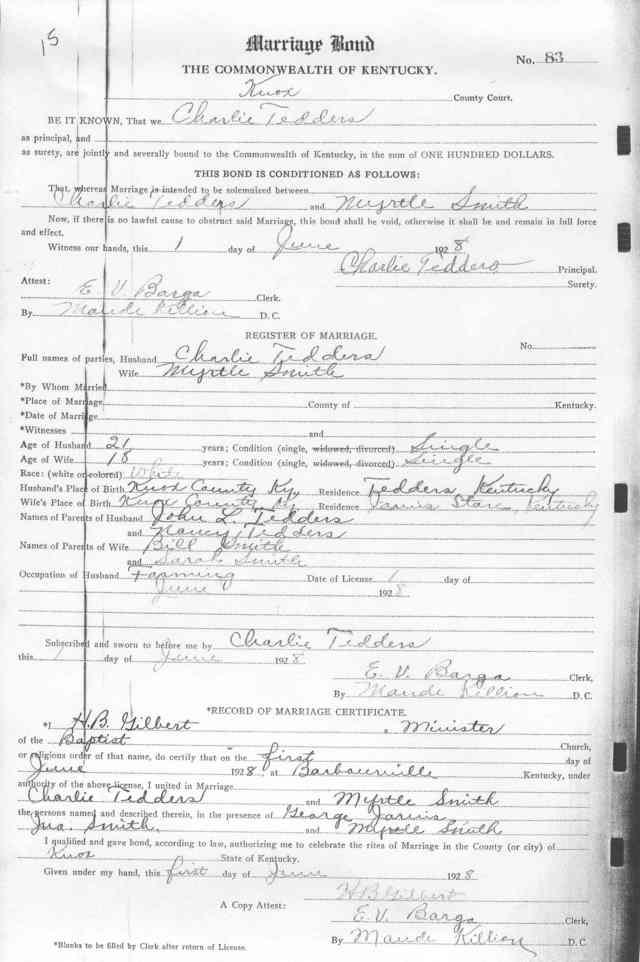 15
Marriage Bond
No. 83
THE COMMONWEALTH OF KENTUCKY.
Knox County Court.
BE IT KNOWN, That we Charlie Tedders
as principal, and
as surety, are jointly and severally bound to the Commonwealth of Kentucky, in the sum of ONE HUNDRED DOLLARS.
THIS BOND IS CONDITIONED AS FOLLOWS:
That, whereas Marriage is intended to be solemnized between
Charlie Tedders and Myrtle Smith
Now, if there is no lawful cause to obstruct said Marriage, this bond shall be void, otherwise it shall be and remain in full force
and effect.
Witness our hands, this 1 day of June 1928
Charlie Tedders Principal.
Surety.
Attest:
E. V. Barga Clerk.
By Maude Killion D. C.
REGISTER OF MARRIAGE.
No.
Full names of parties, Husband Charlie Tedders
Wife Myrtle Smith
*By Whom Married
*Place of Marriage County of Kentucky.
*Date of Marriage
*Witnesses and
Age of Husband 21 years; Condition (single, widowed, divorced) Single
Age of Wife 18 years; Condition (single, widowed, divorced) Single
Race: (white or colored) White
Husband's Place of Birth Knox County Ky, Residence Tedders, Kentucky
Wife's Place of Birth Knox County Ky Residence Jarvis Store, Kentucky
Names of Parents of Husband John L. Tedders
and Nancy Tedders
Names of Parents of Wife Bill Smith
and Sarah Smith
Occupation of Husband Farming Date of License 1 day of
June 1928
Subscribed and sworn to before me by Charlie Tedders
this 1 day of June 1928
E. V. Barga Clerk,
By Maude Killion D. C.
*RECORD OF MARRIAGE CERTIFICATE.
*I H.B. Gilbert, Minister
of the Baptist Church,
or religious order of that name, do certify that on the first day of
June 1928, at Barbourville Kentucky, under
authority of the above license, I united in Marriage
Charlie Tedders and Myrtle Smith
the persons named and described therein, in the presence of George Jarvis
Jna. Smith. and Myrtle Smith
I qualified and gave bond, according to law, authorizing me to celebrate the rites of Marriage in the County (or city) of
Knox State of Kentucky.
Given under my hand, this first day of June 1928
H B Gilbert
A Copy Attest:
E. V. Barga Clerk,
By Maude Killion D. C.
*Blanks to be filled by Clerk after return of License.